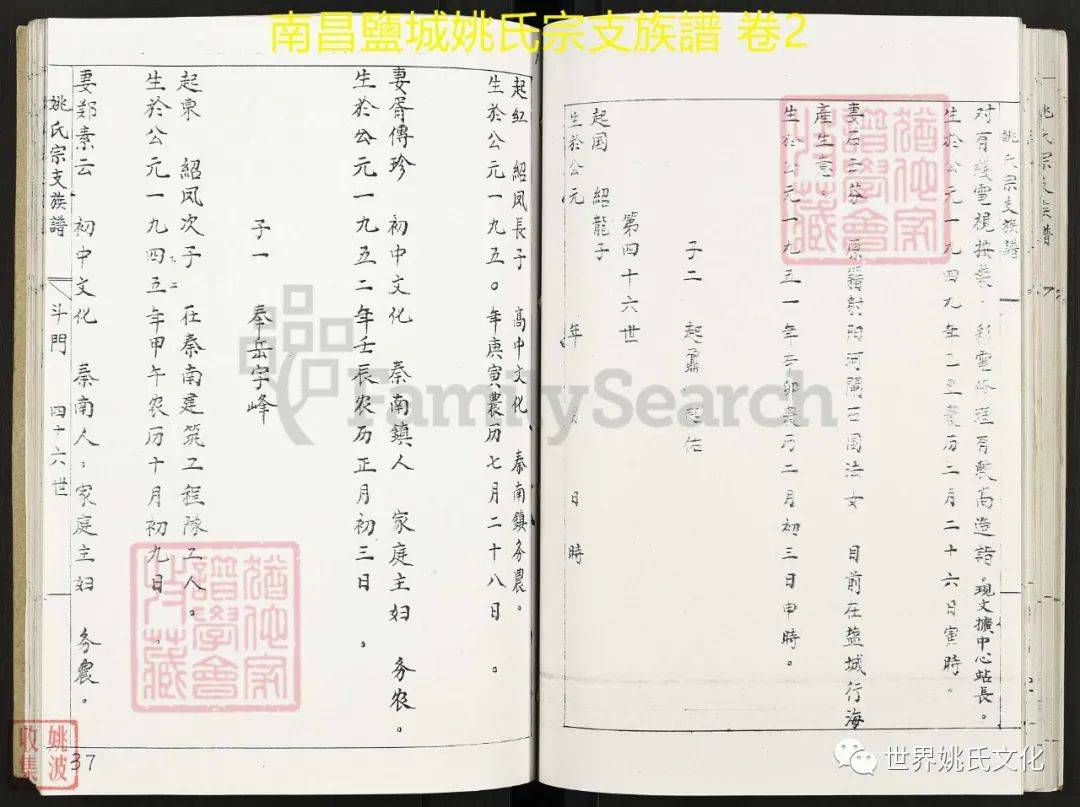 南昌鹽城姚氏宗支族譜 卷2
姚氏宗支族譜
姚氏宗支族譜
对有线電視按裝、彩電修理有較高造詣。現文擴中心站長。
生於公元一九四九年二丑農历二月二十六日寅時。
妻石三芬 原籍射阳河闸石国法女 目前在盐城行海
產生意。
生於公元一九五一年辛卯農历二月初三日申時。
子二 起鼐 起佑
第四十六世
起国 紹龍子
生於公元 年 月 日 時
起紅 紹凤長子 高中文化 泰南鎮务農。
生於公元一九五〇年庚寅農历七月二十八日 。
妻胥傳珍 初中文化 秦南鎮人 家庭主妇 务农。
生於公元一九五二年壬辰农历正月初三日 。
子一 奉岳字峰
起東 紹凤次子 在秦南建筑工程隊工人。
生於公元一九四五年甲午农历十月初九日 。
妻郑素云 初中文化 秦南人:家庭主妇 务農。
姚氏宗支族譜 斗門 四十六世
37
姚波
收集
譜學會
持藏
FamilySearch
世界姚氏文化